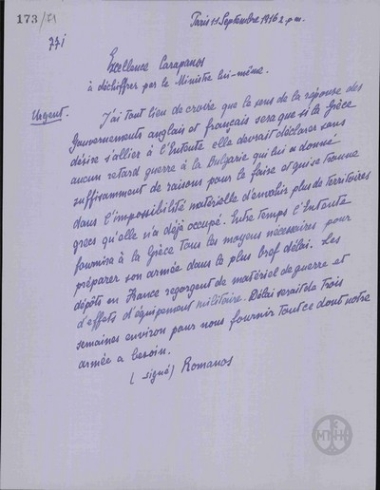 173/51
Paris 11 Septembre 1916 2 p.m.
771
Excellence Carapanos
à déchiffrer par le Ministre lui-même.
Urgent.
J'ai tout lieu de croire que le sens de la réponse des
Gouvernements anglais et français sera que si la Grèce
désire s'allier à l'Entente elle devrait déclarer sans
aucun retard guerre à la Bulgarie qui lui a donné
suffisamment de raisons pour le faire et qui se trouve
dans l'impossibilité matérielle d'envahir plus de territoires
grecs qu'elle n'a déjà occupé. Entre temps l'Entente
fournira à la Grèce tous les moyens nécessaires pour
préparer son armée dans le plus bref délai. Les
dépôts en France regorgent de matériel de guerre et
d'effets d'équipement militaire. Délai serait de trois
semaines environ pour nous fournir tout ce dont notre
armée a besoin.
(signé) Romanos